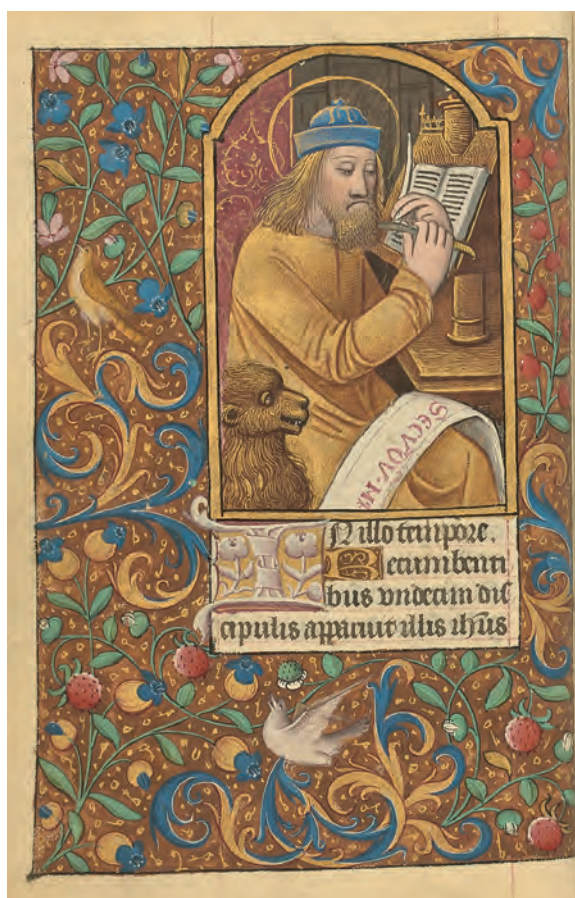 SECVDV·M
IN illo tempore.
Recumbenti
bus vndecim dis
cipulis apparuit illis ihus